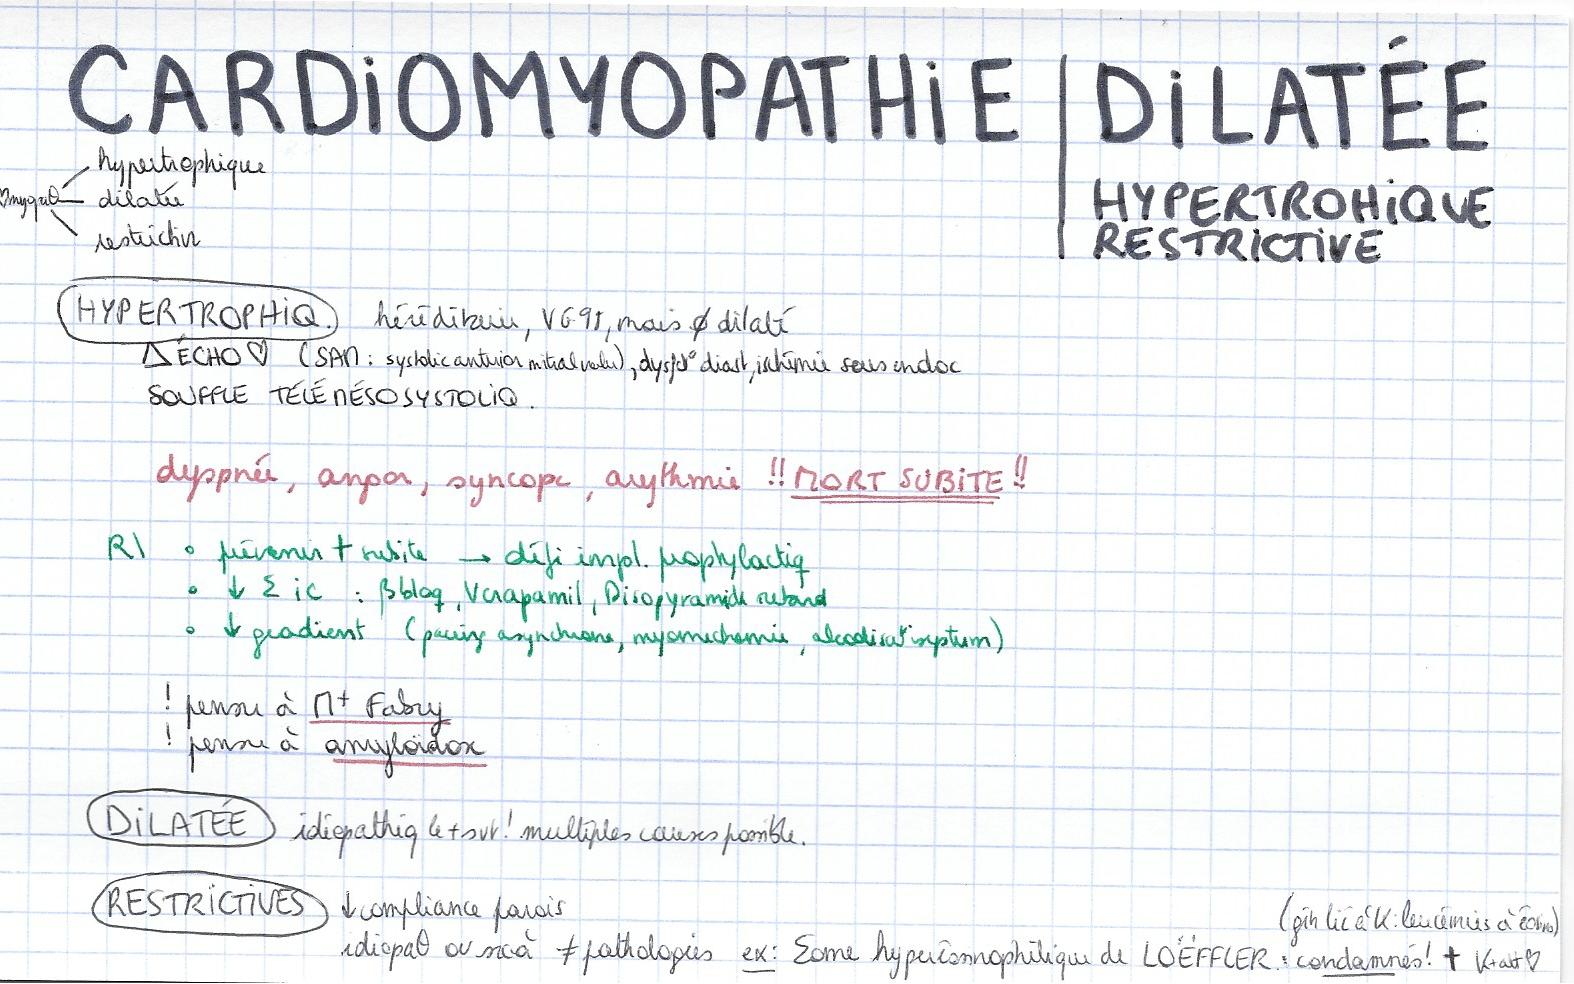 CARDIOMYOPATHIE | DILATÉE
HYPERTROHIQUE
RESTRICTIVE
hypertrophique
♡myopaθ dilatée
restrictiv
HYPERTROPHIQ. héréditaire, VG, mais ∅ dilaté
Δ ÉCHO♡ (SAM : systolic anterior mitral valv), dysfct° diast, ischémie sous endoc
SOUFFLE TÉLÉMÉSOSYSTOLIQ.
dyspnée, angor, syncope, arythmie !! MORT SUBITE !!
R\ • prévenir † subite → défi impl. prophylactiq
• ↓ Σ ic : βbloq, Verapamil, Disopyramide retard
• ↓ gradient (pacing asynchrone, myomectomie, alcoolisat° septum)
! penser à M† Fabry
! penser à amyloïdose
DILATÉE idiopathiq le + svt ! multiples causes possible.
RESTRICTIVES ↓ compliance parois
(gén lié à K : leucémies à éosino)
idiopaθ ou 2r à ≠ pathologies ex : Σome hyperéosinophilique de LOËFFLER : condamnés ! †